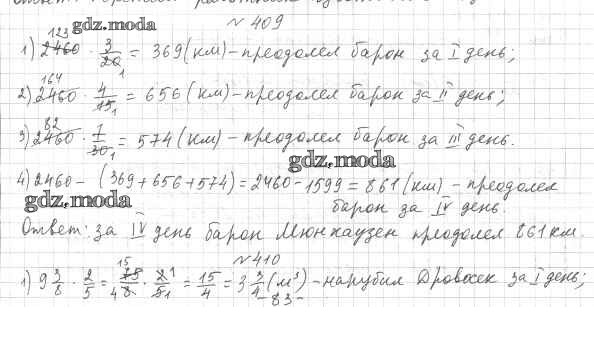 № 409
gdz.moda
1) 2460 · 3/20 = 369 (км) – преодолел барон за I день;
2) 2460 · 4/15 = 656 (км) – преодолел барон за II день;
3) 2460 · 7/30 = 574 (км) – преодолел барон за III день.
gdz.moda
4) 2460 – (369 + 656 + 574) = 2460 – 1599 = 861 (км) – преодолел
gdz.moda
барон за IV день.
Ответ: за IV день барон Мюнхаузен преодолел 861 км.
№ 410
1) 9 3/8 · 2/5 = 75/8 · 2/5 = 15/4 = 3 3/4 (м³) – нарубил Дровосек за I день;
– 83 –